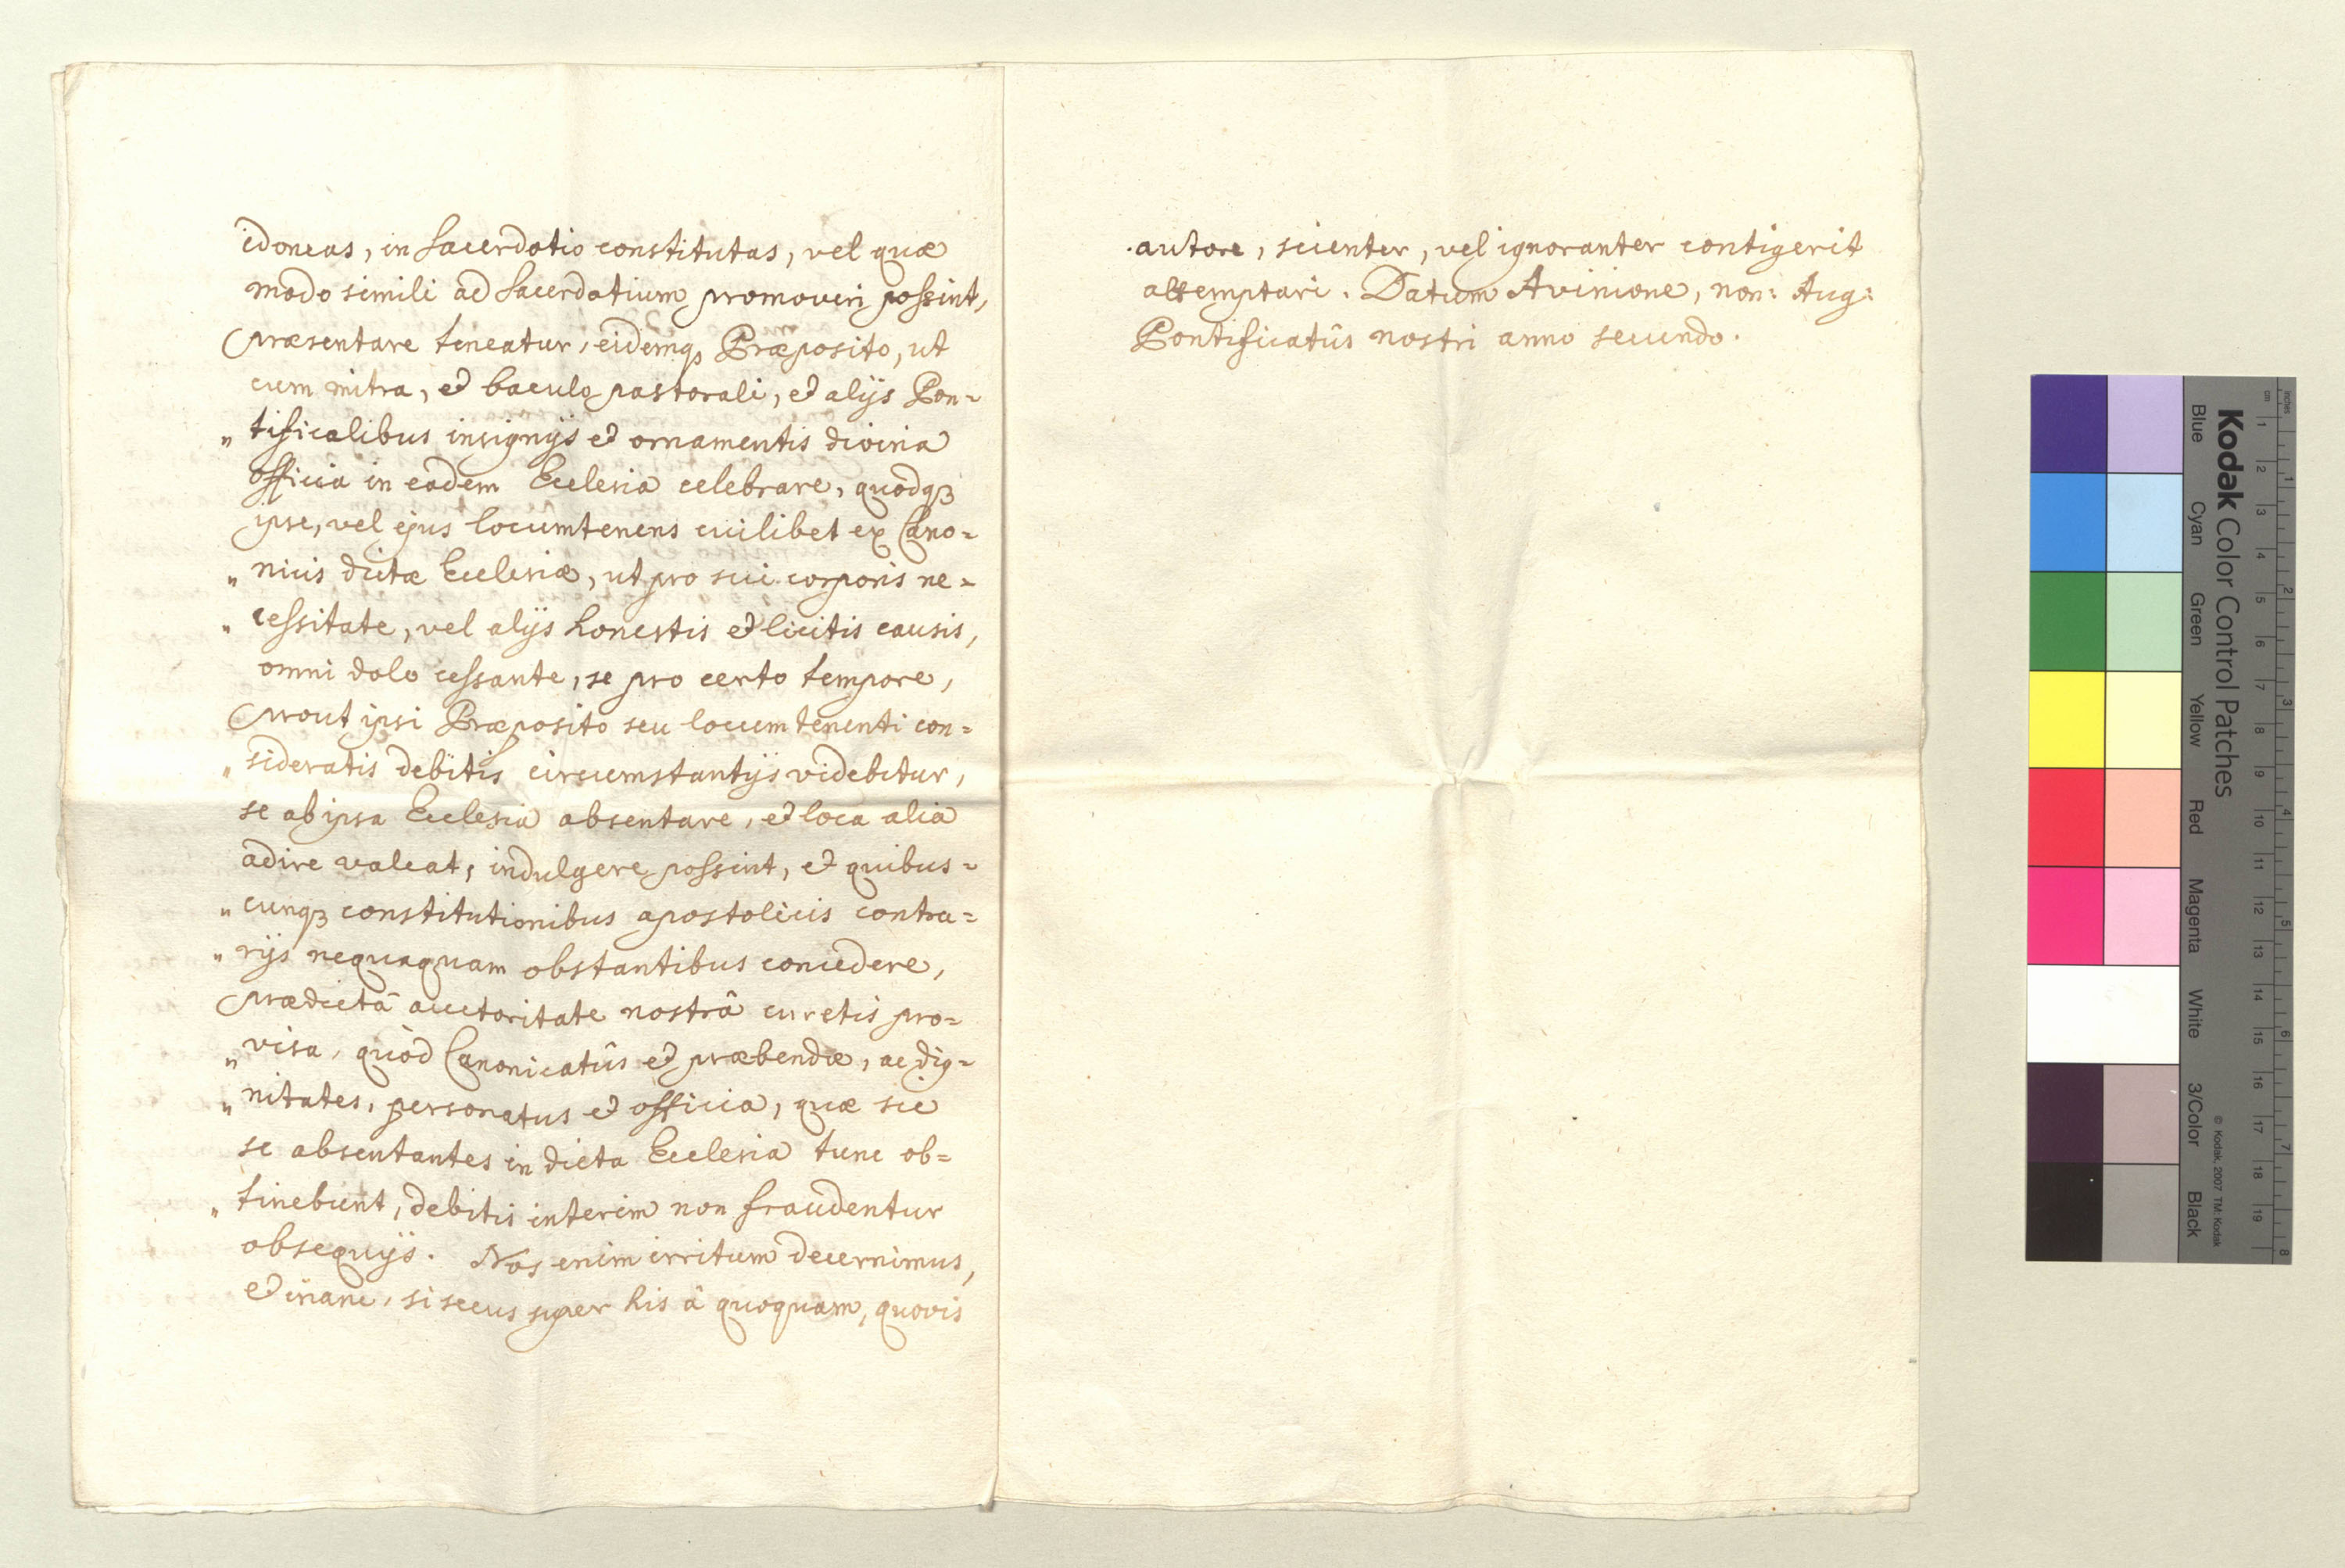 idoneas, in Sacerdotio constitutas, vel quæ
modo simili ad Sacerdotium promoveri possint,
præsentare teneatur, eidemq₃ Præposito, ut
cum mitra, et baculo pastorali, et alijs Pon=
„ tificalibus insignijs et ornamentis divina
officia in eadem Ecclesia celebrare, quodq₃
ipse, vel ejus locumtenens cuilibet ex Cano=
„ nicis dictæ Ecclesiæ, ut pro sui corporis ne=
„ cessitate, vel alijs honestis et licitis causis,
omni dolo cessante, se pro certo tempore,
prout ipsi Præposito seu locum tenenti con=
„ sideratis debitis circumstantijs videbitur,
se ab ipsa Ecclesia absentare, et loca alia
adire valeat, indulgere possint, et quibus=
„ cunq₃ constitutionibus apostolicis contra=
„ rijs nequaquam obstantibus concedere,
prædictâ auctoritate nostrâ curetis pro=
„ visa, quòd Canonicatûs et præbendæ, ac dig=
„ nitates, personatus et officia, quæ sic
se absentantes in dicta Ecclesia tunc ob=
„ tinebunt, debitis interim non fraudentur
obsequijs. Nos enim irritum decernimus,
et inane, si secus super his â quoquam, quovis
autore, scienter, vel ignoranter contigerit
attemptari. Datum Avinione, non: Aug:
Pontificatûs nostri anno secundo.
Kodak Color Control Patches
Blue Cyan Green Yellow Red Magenta White 3/Color Black
© Kodak, 2007 TM: Kodak
cm 1 2 3 4 5 6 7 8 9 10 11 12 13 14 15 16 17 18 19
inches 1 2 3 4 5 6 7 8